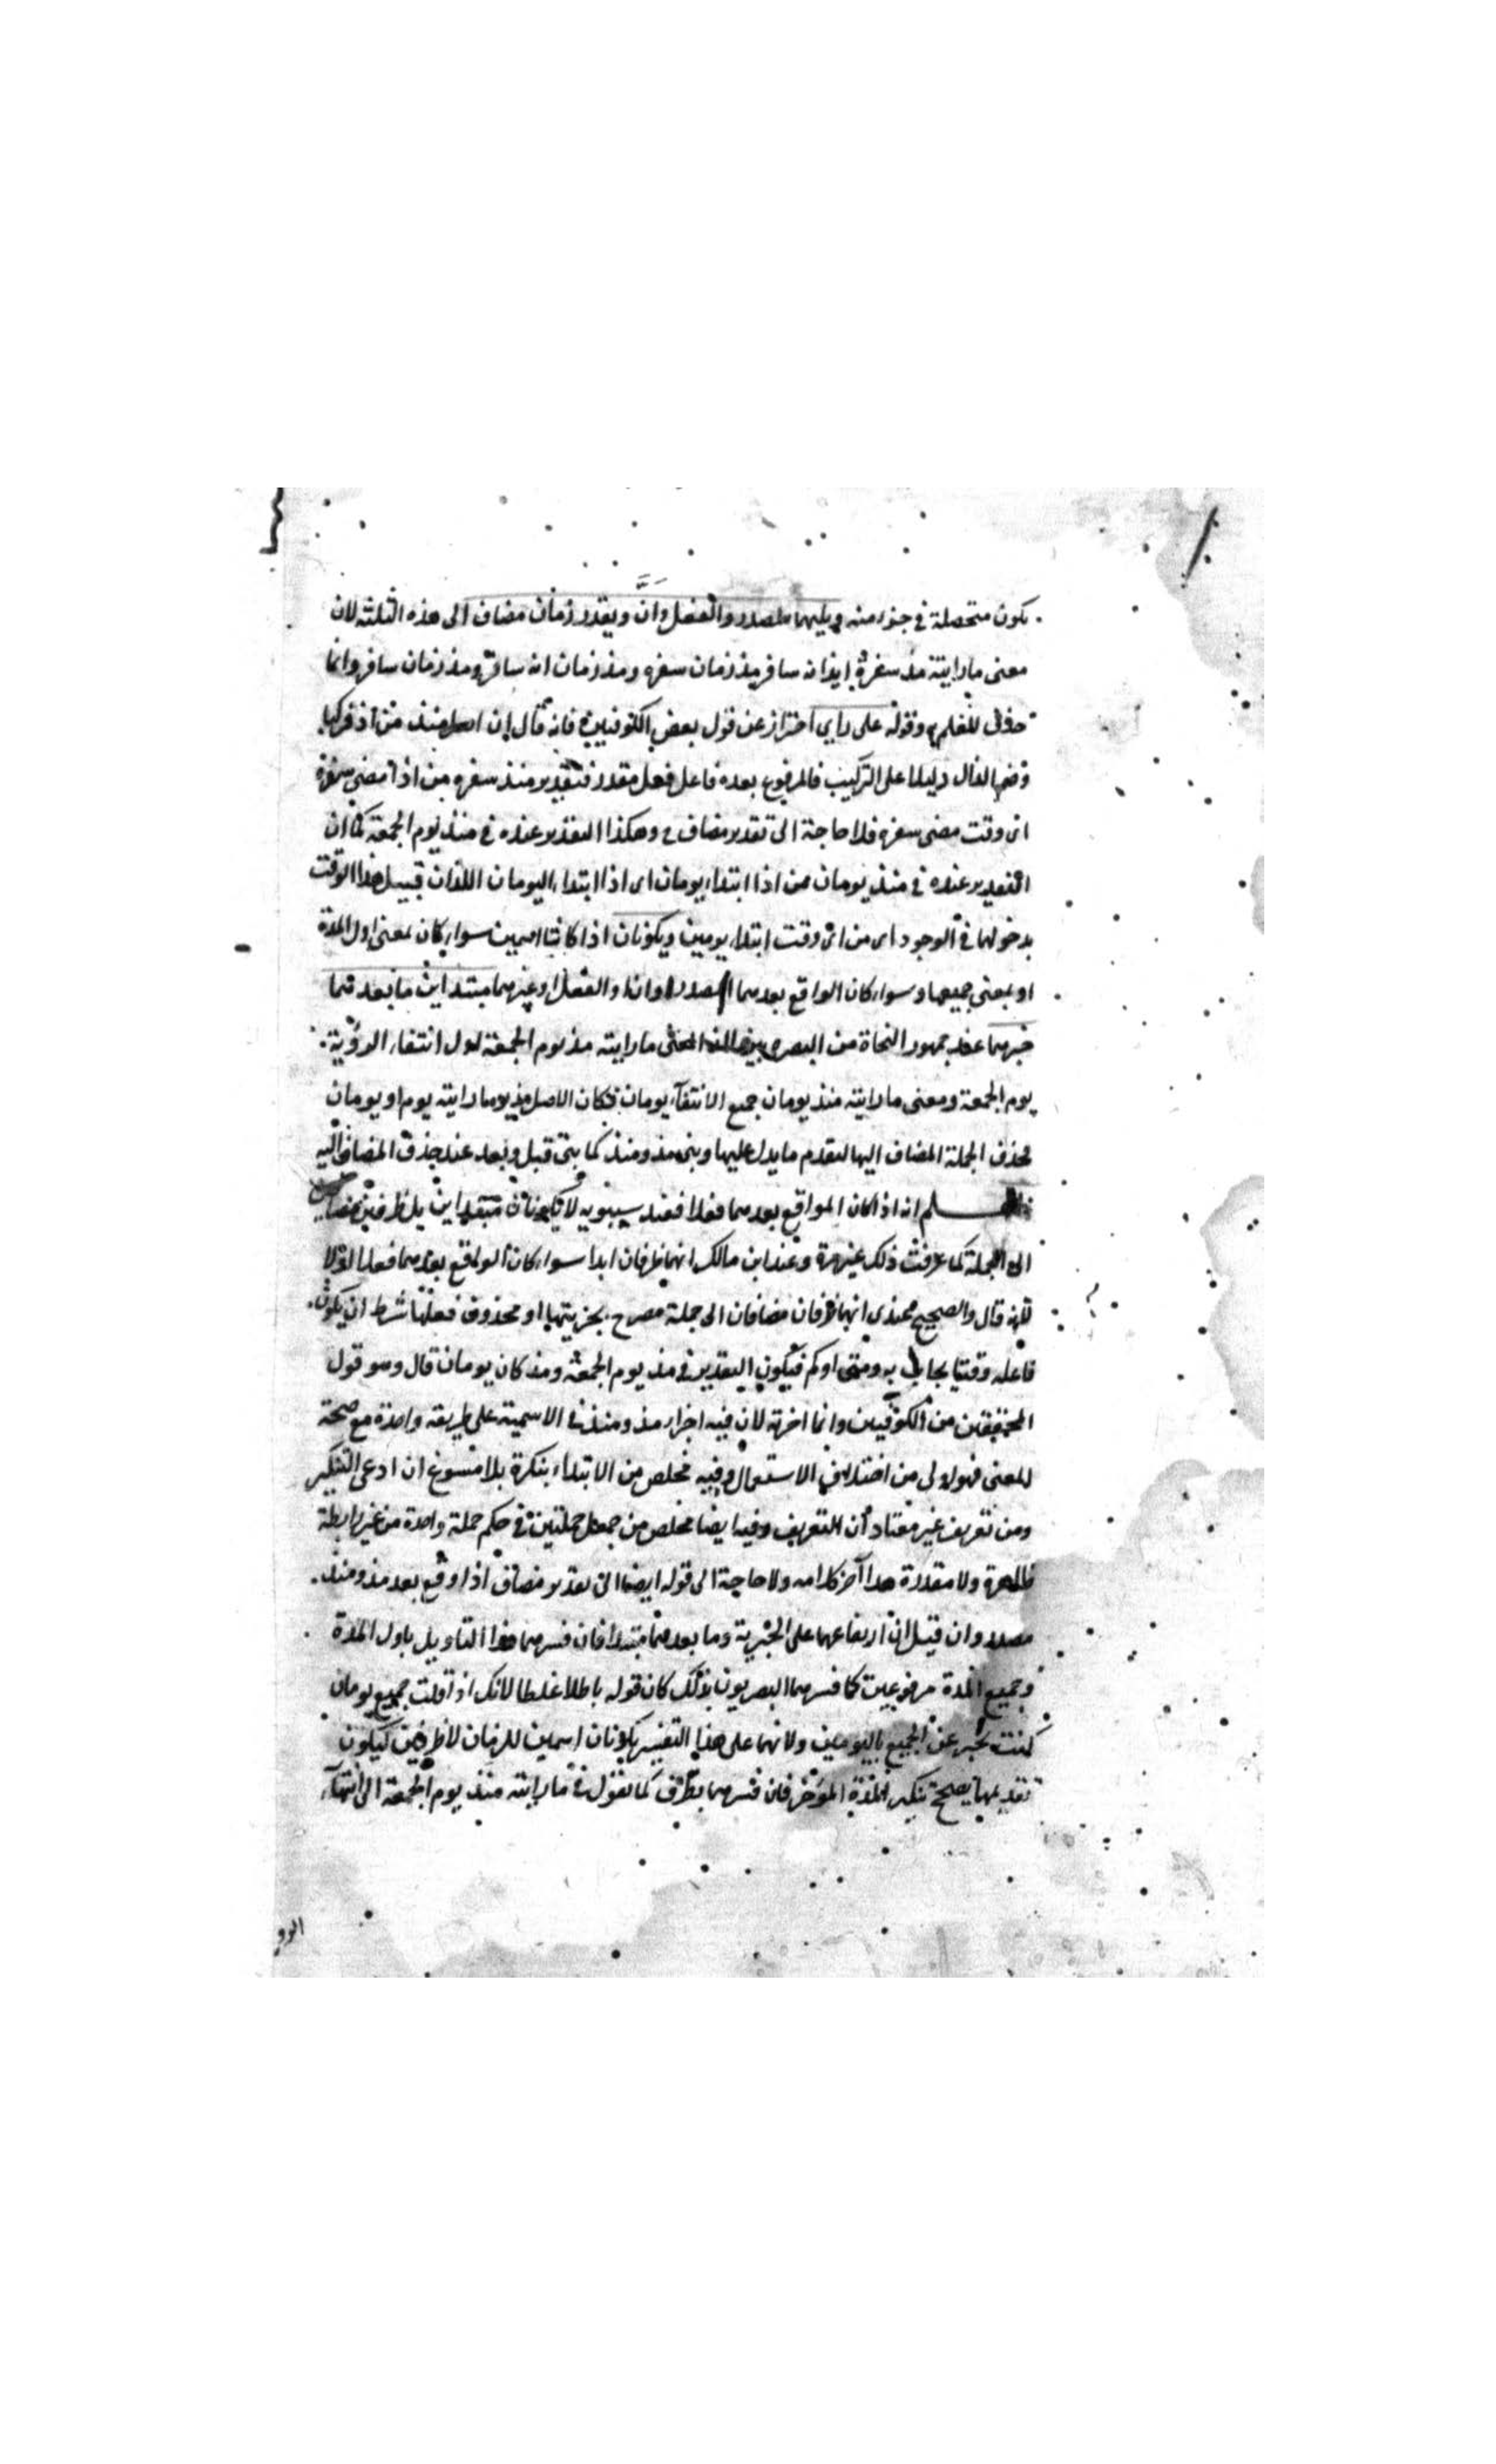 يكون متحصلة في جزء منه ويليهما المصدر والفعل وانَّ ويقدر زمان مضاف الى هذه الثلثة لان
معنى ما رايته مذ سفره او مذ انه سافر مذ زمان سفره ومذ زمان انه سافر ومذ زمان سافر وانما
حذف للعلم به وقوله على راي احتراز عن قول بعض الكوفيين فانه قال ان اصل منذ من اذ فركبا
وضم الذال دليلا على التركيب فالمرفوع بعده فاعل فعل مقدر فتقدير منذ سفره من اذ مضى سفره
اى وقت مضى سفره فلا حاجة الى تقدير مضاف وهكذا التقدير عنده في منذ يوم الجمعة كما ان
التقدير عنده في منذ يومان من اذا ابتداء يومان اى اذا ابتداء اليومان اللذان قبيل هذا الوقت
بدخولهما في الوجود اى من اى وقت ابتداء يومين ويكونان اذا كانتا اسمين سواء كان بمعنى اول المدة
او بمعنى جميعها وسواء كان الواقع بعدهما المصدر او ان او الفعل او غيرهما مبتداين ما بعدهما
خبرهما عند جمهور النحاة من البصريين المعنى ما رايته مذ يوم الجمعة اول انتفاء الرؤية
يوم الجمعة ومعنى ما رايته منذ يومان جميع الانتفاء يومان فكان الاصل ما رايته يوم او يومان
فحذف الجملة المضاف اليها لتقدم ما يدل عليها وبنى مذ ومنذ كما بنى قبل وبعد عند حذف المضاف اليه
انه اذا كان الواقع بعدهما فعلا فعند سيبويه لا يكونان مبتداين بل ظرفين مضافين
الى الجملة كما عرفت ذلك غير مرة وعند ابن مالك انهما ظرفان ابدا سواء كان الواقع بعدهما فعلا او لا
لانه قال والصحيح عندى انهما ظرفان مضافان الى جملة مصرح بجزئيها او محذوف فعلها شرط ان يكون
فاعله وقتا يجاب به متى او كم فيكون التقدير في مذ يوم الجمعة ومذ كان يومان قال وهو قول
المحققين من الكوفيين وانما اخرته لان فيه اجراء مذ ومنذ في الاسمية على طريقة واحدة مع صحة
المعنى فهو اولى من اختلاف الاستعمال وفيه تخلص من الابتداء بنكرة بلا مسوغ ان ادعى التنكير
ومن تعريف غير معتاد ان التعريف وفيه ايضا تخلص من جعل جملتين في حكم جملة واحدة من غير رابطة
ظاهرة ولا مقدرة هذا آخر كلامه ولا حاجة الى قوله ايضا الى تقدير مضاف اذا وقع بعد مذ ومنذ
مصدر وان قيل ان ارتفاعهما على الخبرية وما بعدهما مبتدا فان فسرهما هذا التاويل باول المدة
وجميع المدة مرفوعين كما فسرهما البصريون بذلك كان قوله باطلا غلطا لانك اذا قلت جميع يومان
كنت تخبر عن الجميع باليومين ولانهما على هذا التفسير يكونان اسمين للزمان لا ظرفين ليكون
تقديمهما يصحح تنكير المدة المؤخر فان فسرهما بظرف كما تقول في ما رايته منذ يوم الجمعة الى انتهاء